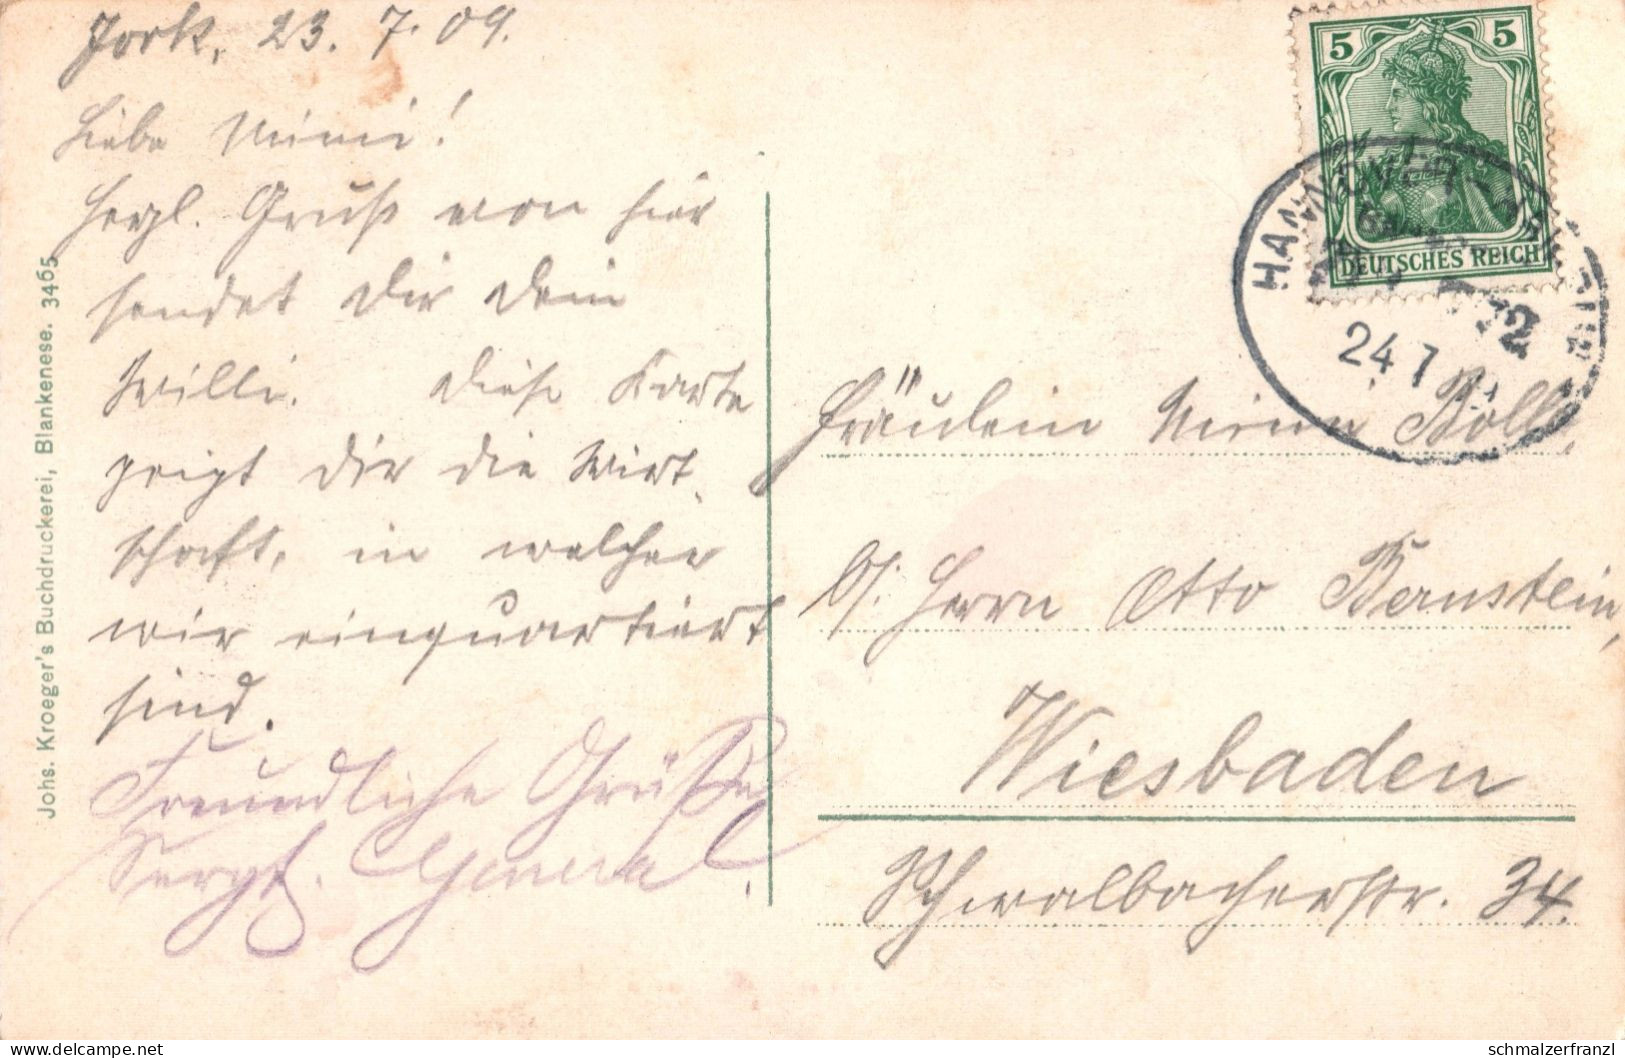 Jork, 23. 7. 09.
Liebe Mimi!
Herzl. Gruß von hier
sendet Dir Dein
Willi. Diese Karte
zeigt Dir die Wirt-
schaft, in welcher
wir einquartiert
sind.
Freundliche Grüße
Sergt.
Johs. Kroeger's Buchdruckerei, Blankenese. 3465
5 5
DEUTSCHES REICH
24 7
Fräulein Bolle,
b/. Herrn Otto Bernstein,
Wiesbaden
Schwalbacherstr. 34.
schmalzerfranzl